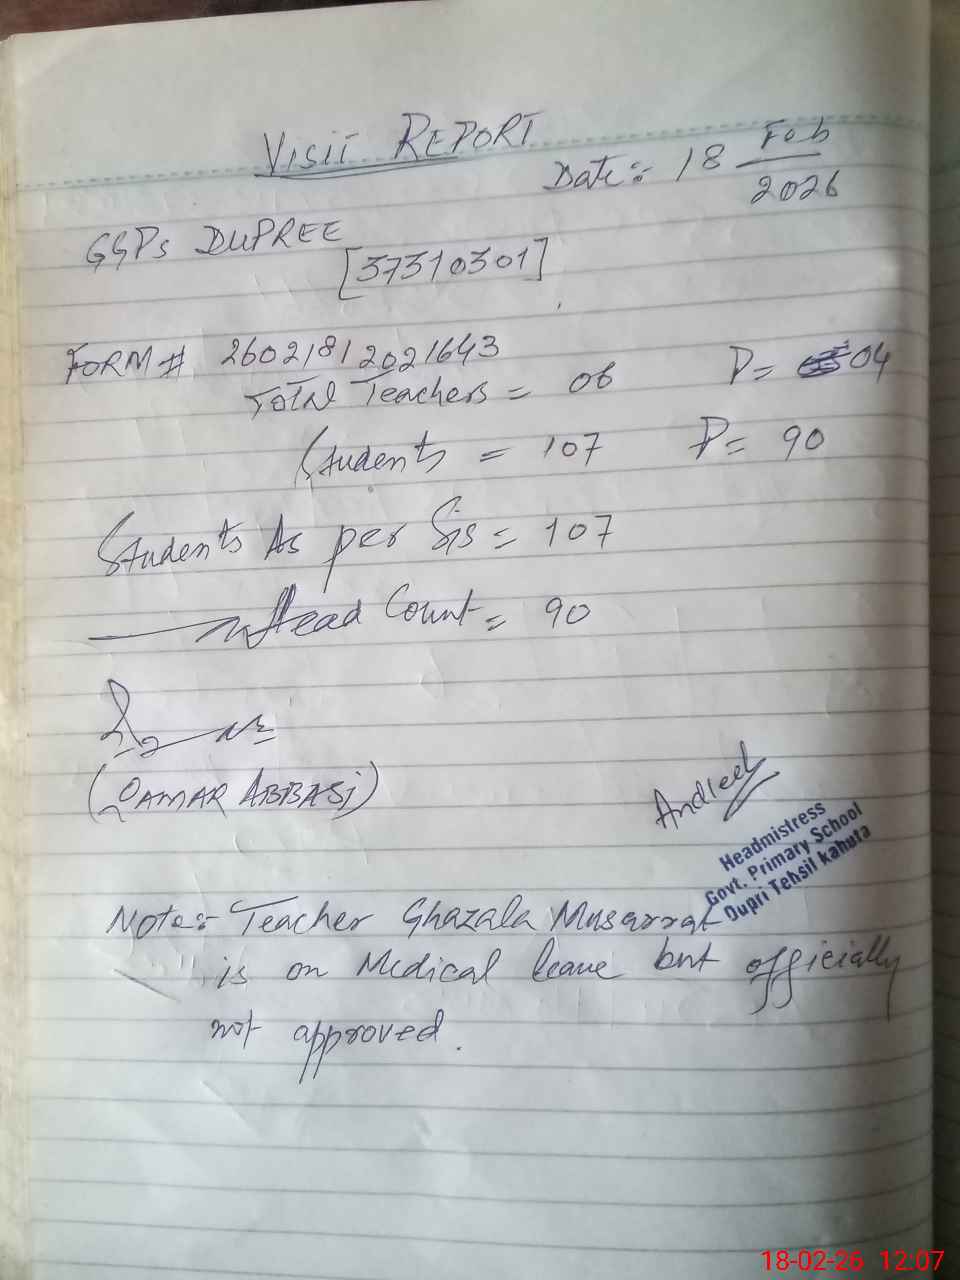 VISIT REPORT
Date:- 18 Feb 2026
GGPS DUPREE
[37310301]
FORM # 26021812021643
Total Teachers = 06 P = 04
Students = 107 P = 90
Students As per Sis = 107
Head Count = 90
(QAMAR ABBASI)
Headmistress
Govt. Primary School
Dupri Tehsil kahuta
Note:- Teacher Ghazala Musarrat
is on Medical leave but officially
not approved.
18-02-26 12:07